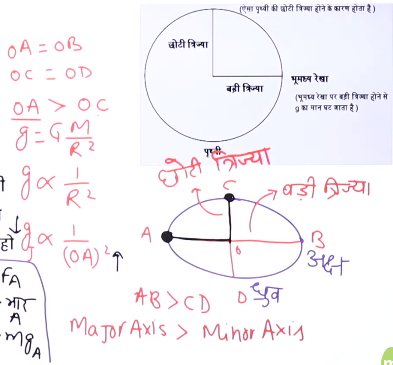 (ऐसा पृथ्वी की छोटी त्रिज्या होने के कारण होता है)
छोटी त्रिज्या
बड़ी त्रिज्या
भूमध्य रेखा
(भूमध्य रेखा पर बड़ी त्रिज्या होने से
g का मान घट जाता है)
पृथ्वी
OA = OB
OC = OD
OA > OC
g = G M/R²
g ∝ 1/R²
हो g ∝ 1/(OA)² ↑
छोटी त्रिज्या
बड़ी त्रिज्या
C
A
B
O
अक्ष
D ध्रुव
AB > CD
Major Axis > Minor Axis
FA
भार
A
mgA